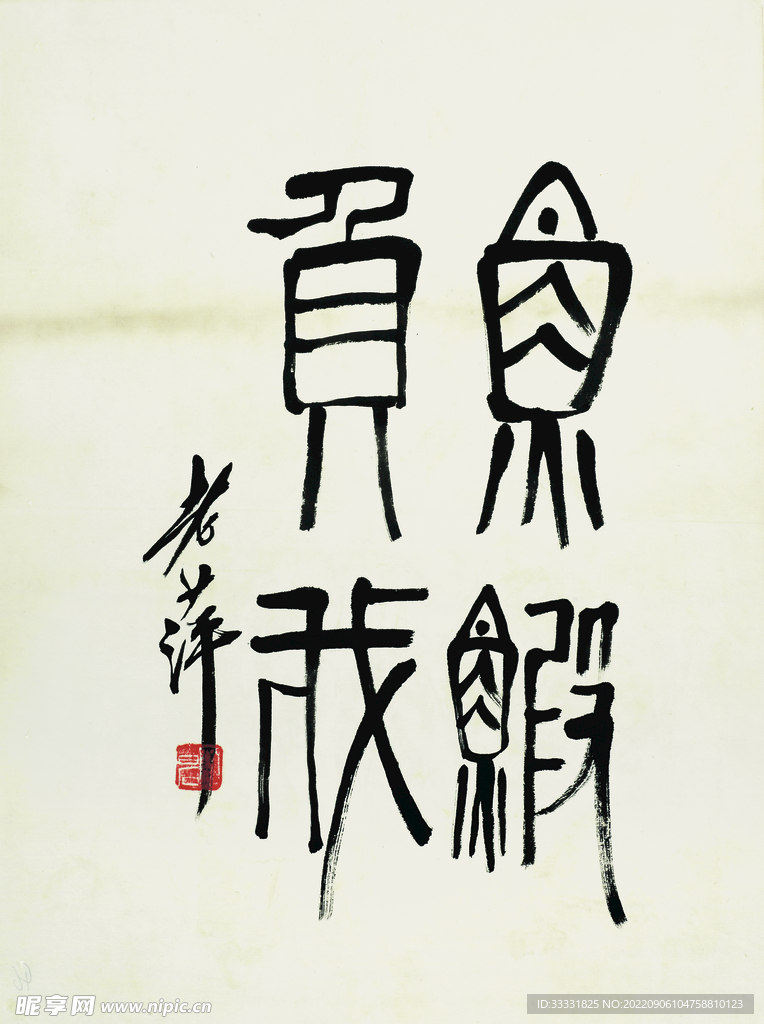 魚鰕
負我
老萍
昵享网 www.nipic.cn
ID:33331825 NO:20220906104758810123